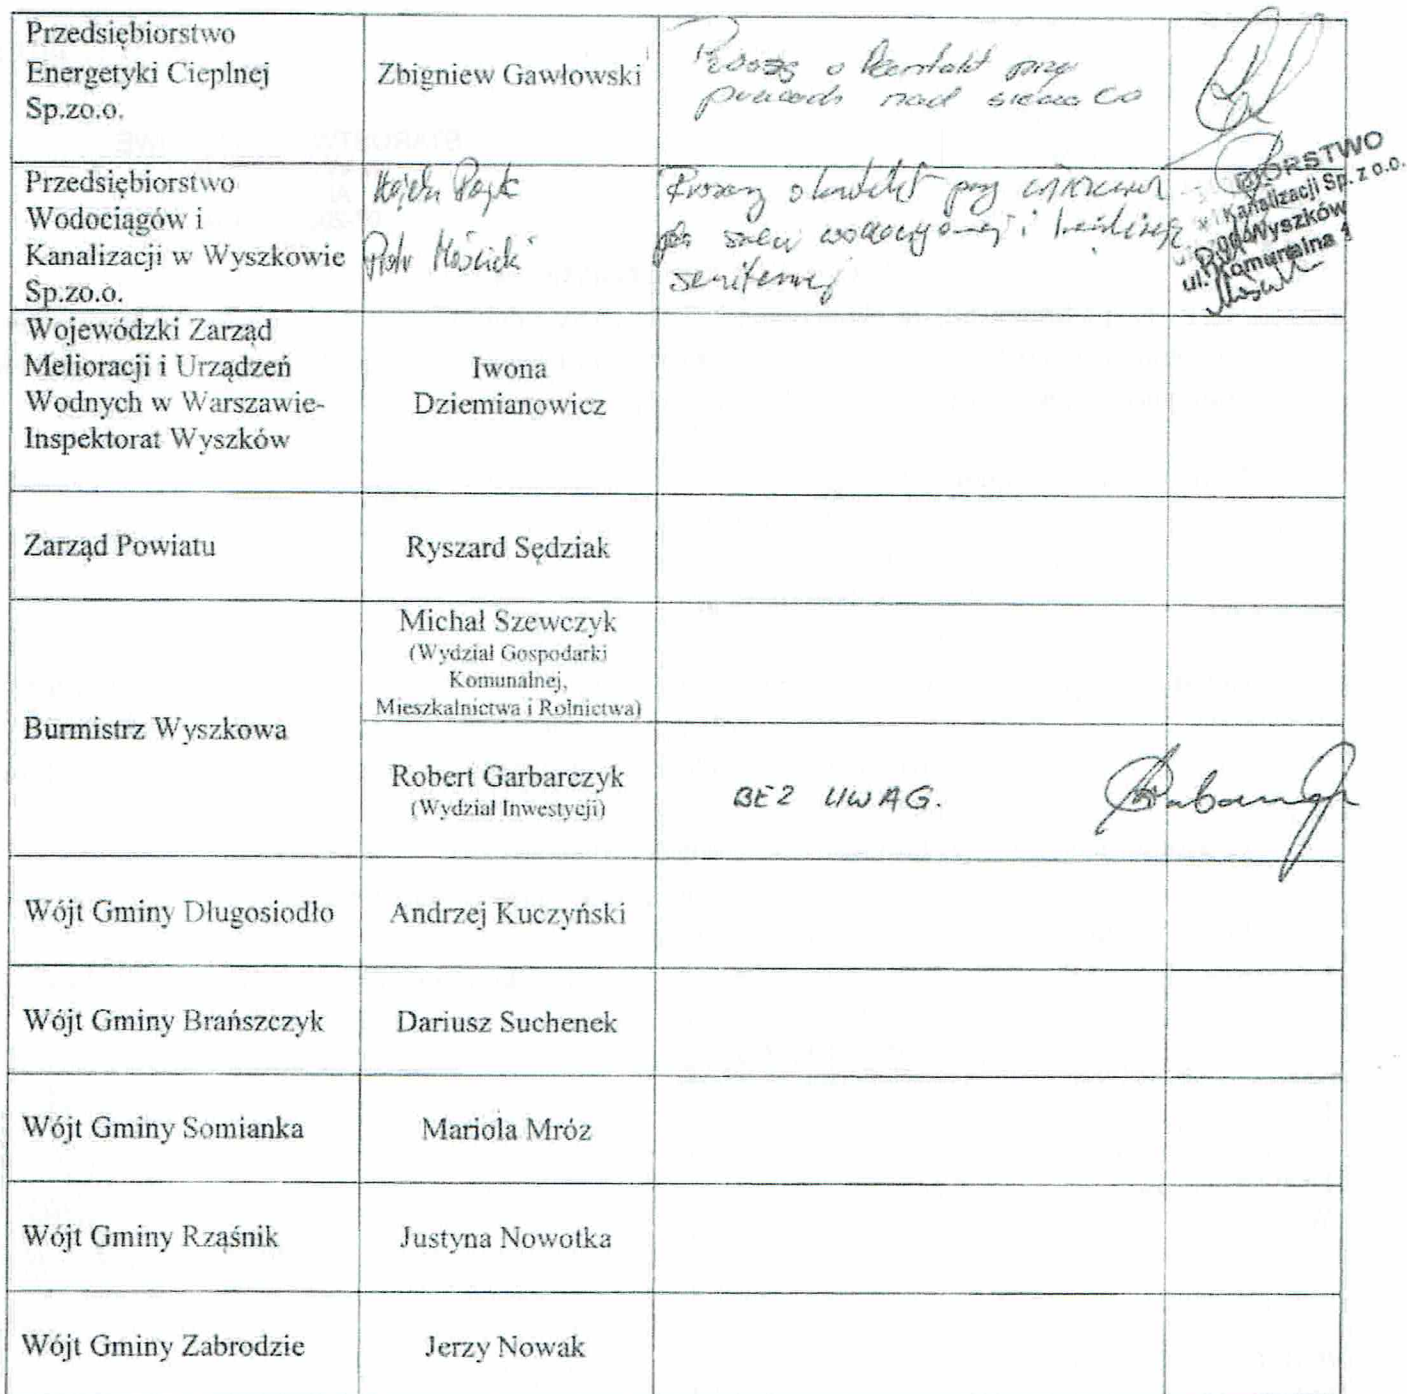 Przedsiębiorstwo
Energetyki Cieplnej
Sp.zo.o.
Zbigniew Gawłowski
Proszę o kontakt przy
pracach nad siecią CO
Przedsiębiorstwo
Wodociągów i
Kanalizacji w Wyszkowie
Sp.zo.o.
Piotr Mościcki
Proszę o kontakt przy
sieci wodociągowej i
sanitarnej
BIORSTWO
i Kanalizacji Sp. z o.o.
Wyszków
ul. Komunalna 1
Wojewódzki Zarząd
Melioracji i Urządzeń
Wodnych w Warszawie-
Inspektorat Wyszków
Iwona
Dziemianowicz
Zarząd Powiatu
Ryszard Sędziak
Burmistrz Wyszkowa
Michał Szewczyk
(Wydział Gospodarki
Komunalnej,
Mieszkalnictwa i Rolnictwa)
Robert Garbarczyk
(Wydział Inwestycji)
BEZ UWAG.
Wójt Gminy Długosiodło
Andrzej Kuczyński
Wójt Gminy Brańszczyk
Dariusz Suchenek
Wójt Gminy Somianka
Mariola Mróz
Wójt Gminy Rząśnik
Justyna Nowotka
Wójt Gminy Zabrodzie
Jerzy Nowak